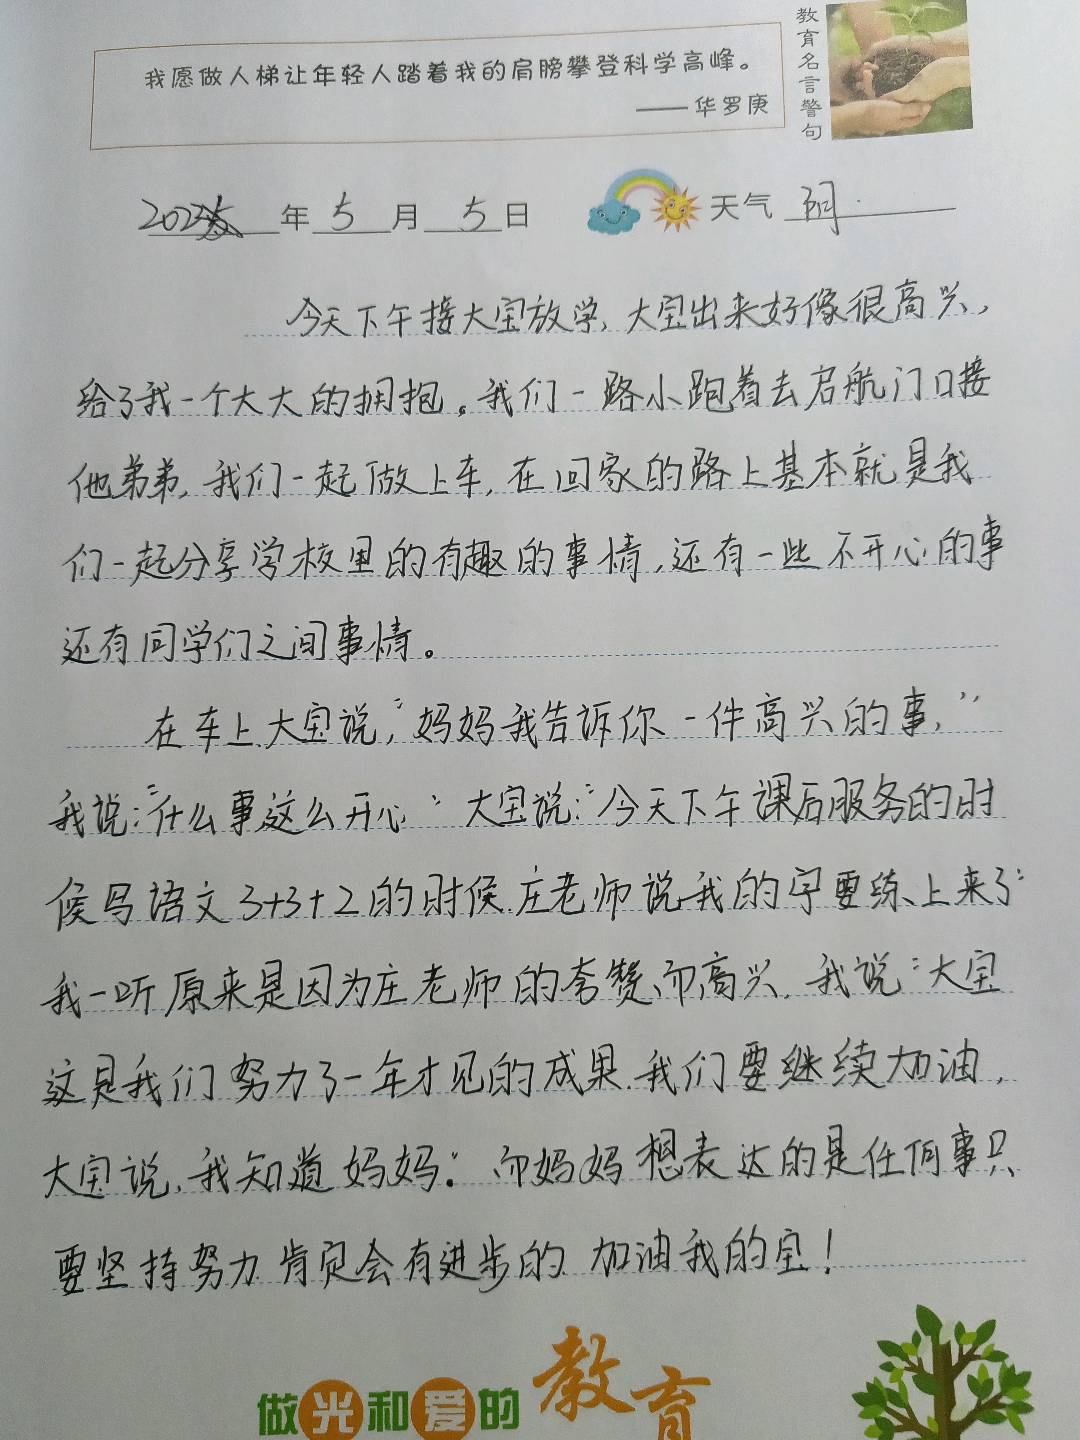 我愿做人梯让年轻人踏着我的肩膀攀登科学高峰。
——华罗庚
教育名言警句
2023年5月5日 天气 阴.
今天下午接大宝放学,大宝出来好像很高兴,
给了我一个大大的拥抱。我们一路小跑着去启航门口接
他弟弟,我们一起做上车,在回家的路上基本就是我
们一起分享学校里的有趣的事情,还有一些不开心的事
还有同学们之间事情。
在车上大宝说,“妈妈我告诉你一件高兴的事,”
我说:“什么事这么开心”大宝说:“今天下午课后服务的时
候写语文3+3+2的时候庄老师说我的字要练上来了”
我一听原来是因为庄老师的夸赞而高兴,我说“大宝
这是我们努力了一年才见的成果.我们要继续加油,
大宝说,我知道妈妈”而妈妈想表达的是任何事只
要坚持努力肯定会有进步的 加油我的宝!
做光和爱的教育